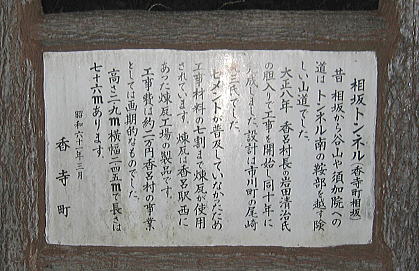 相坂トンネル(香寺町相坂)
昔 相坂から谷山や須加院への
道は、トンネル南の鞍部を越す険
しい山道でした。
大正八年 香呂村長の岩田清治氏
の胆入りで工事を開始し同十年に
完成しました。設計は市川町の尾崎
氏でした。
セメントが普及していなかったため
工事材料の七割まで煉瓦が使用
されています。煉瓦は香呂駅西に
あった煉瓦工場の製品です。
工事費は約二万円香呂村の事業
としては画期的なものでした。
高さ二.九m横幅二.四五mで長さは
七十六mあります。
昭和六十一年三月
香寺町